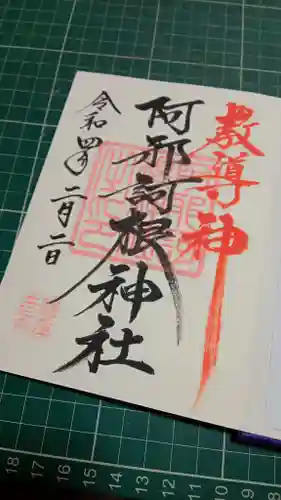 教導神
阿邪訶根神社
令和四年二月二日
18
17
16
15
14
13
12
11
10
9
8